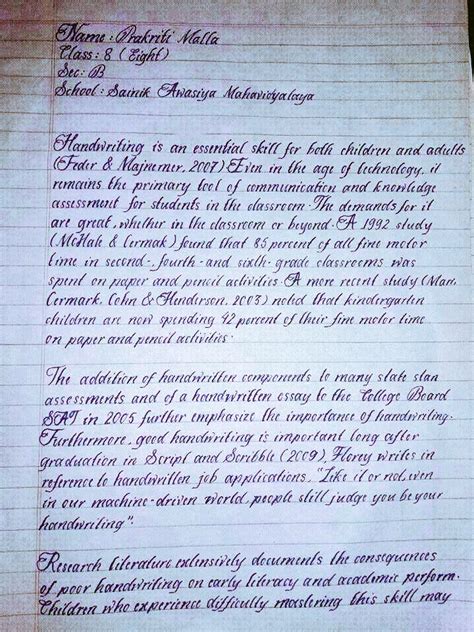 Name : Prakriti Malla
Class : 8 ( Eight)
Sec : B
School : Sainik Awasiya Mahavidyalaya
Handwriting is an essential skill for both children and adults
(Feder & Majnemer, 2007) Even in the age of technology, it
remains the primary tool of communication and knowledge
assessment for students in the classroom. The demands for it
are great, whether in the classroom or beyond. A 1992 study
(McHale & Cermak) found that 85 percent of all fine motor
time in second-, fourth- and sixth- grade classrooms was
spent on paper and pencil activities. A more recent study (Marr,
Cermark, Cohn & Henderson, 2003) noted that kindergartin
children are now spending 42 percent of their fine motor time
on paper and pencil activities.
The addition of handwritten components to many state stan
assessments and of a handwritten essay to the College Board
SAT in 2005 further emphasize the importance of handwriting.
Furthermore, good handwriting is important long after
graduation in Script and Scribble (2009), Florey writes in
reference to handwritten job applications, "Like it or not, even
in our machine-driven world, people still judge you be your
handwriting".
Research literature extensively documents the consequences
of poor handwriting on early literacy and academic perform.
Children who experience difficulty mastering this skill may